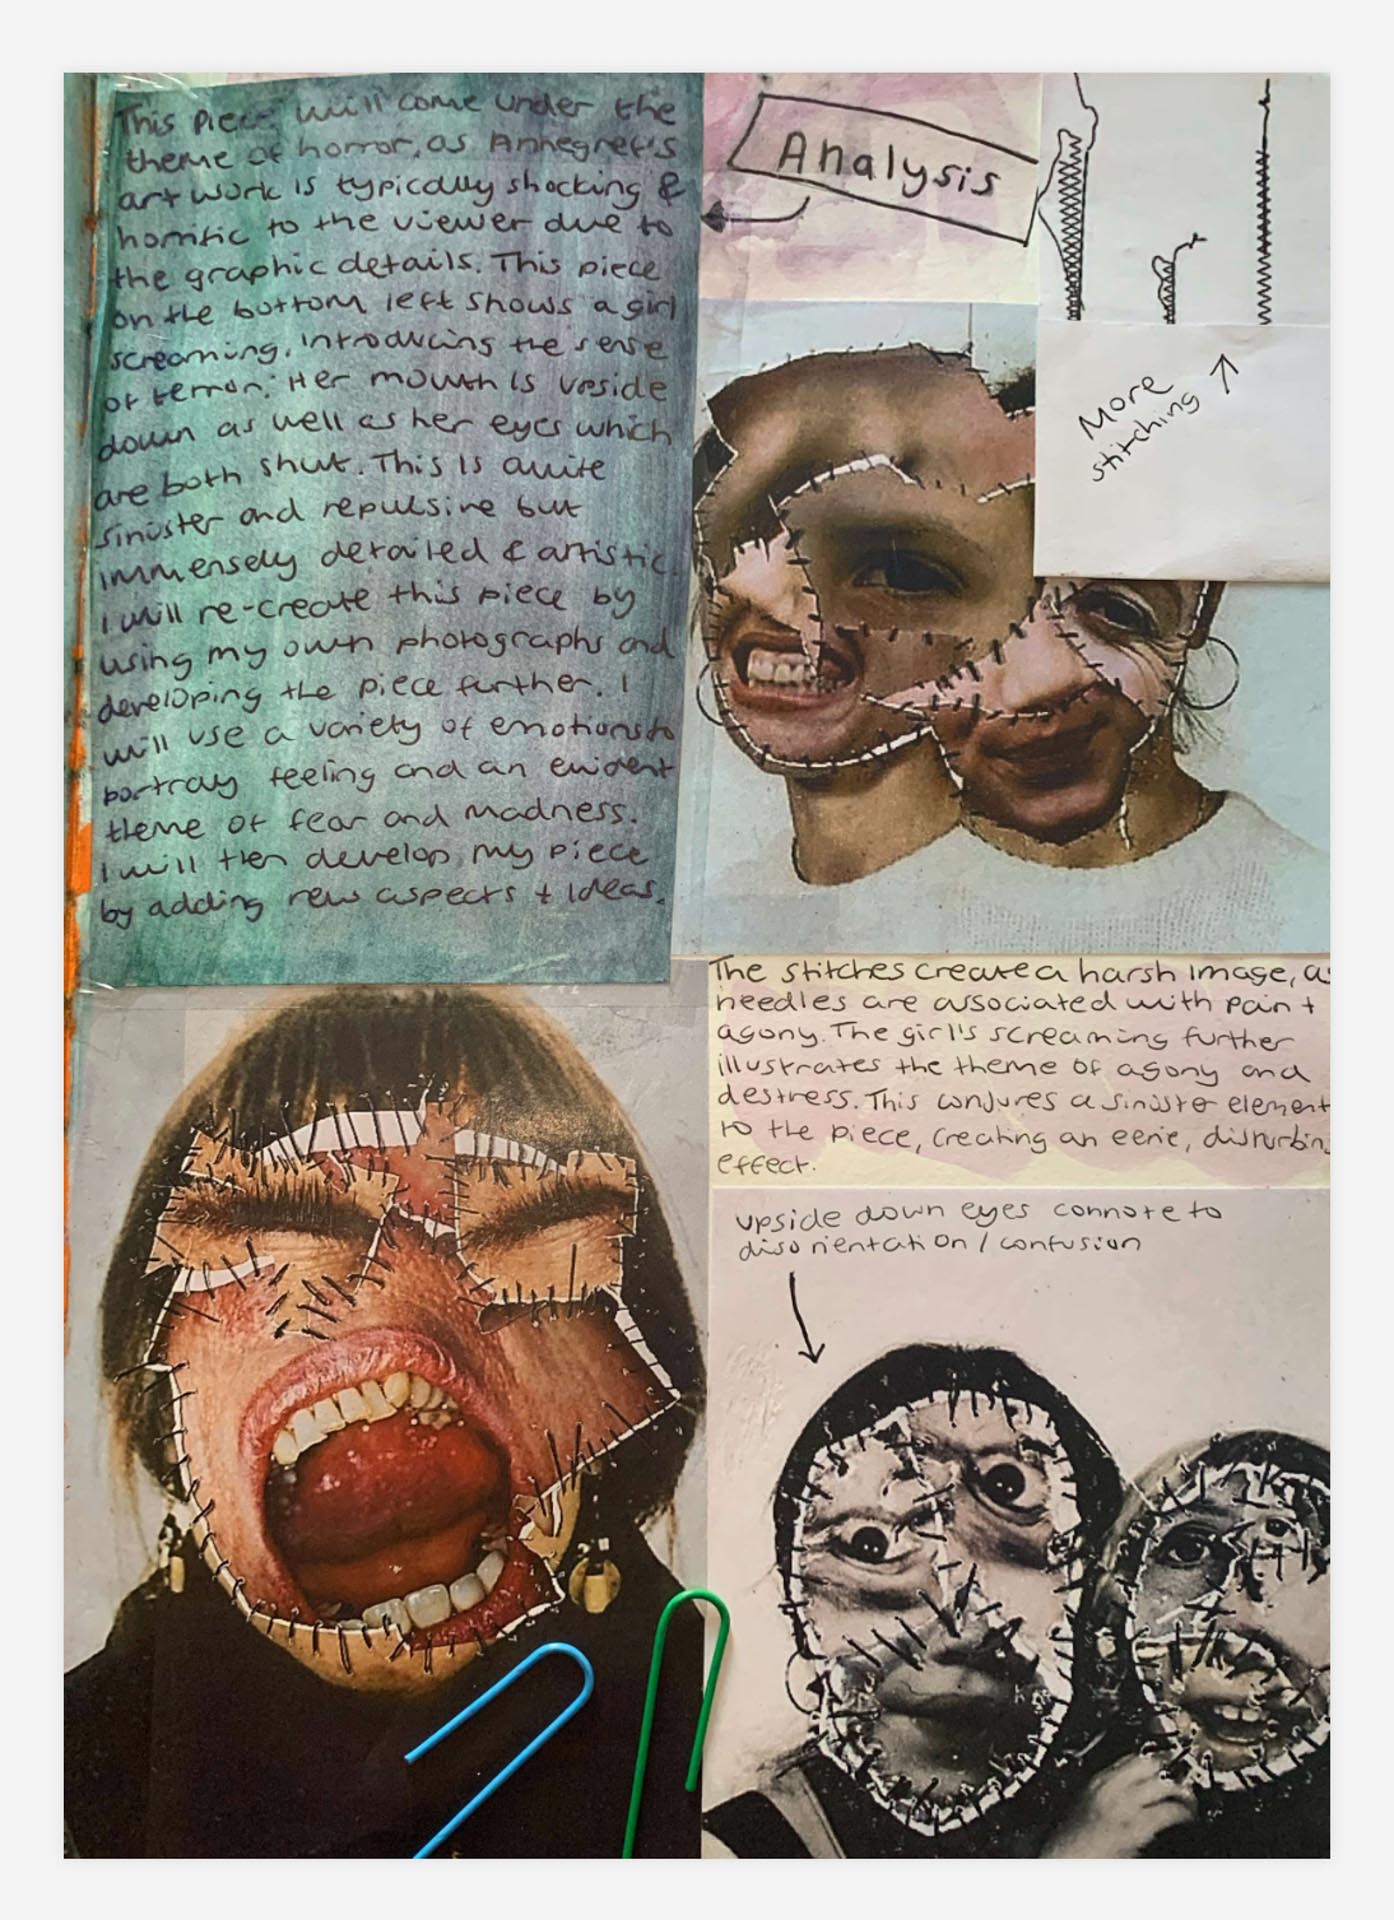 This piece will come under the
theme of horror, as Annegret's
artwork is typically shocking &
horrific to the viewer due to
the graphic details. This piece
on the bottom left shows a girl
screaming, introducing the sense
of terror. Her mouth is upside
down as well as her eyes which
are both shut. This is quite
sinister and repulsive but
immensely detailed & artistic.
I will re-create this piece by
using my own photographs and
developing the piece further. I
will use a variety of emotions to
portray feeling and an evident
theme of fear and madness.
I will then develop my piece
by adding new aspects + ideas.
Analysis
More
stitching
The stitches create a harsh image, as
needles are associated with pain +
agony. The girl's screaming further
illustrates the theme of agony and
destress. This conjures a sinister element
to the piece, creating an eerie, disturbing
effect.
upside down eyes connote to
disorientation / confusion